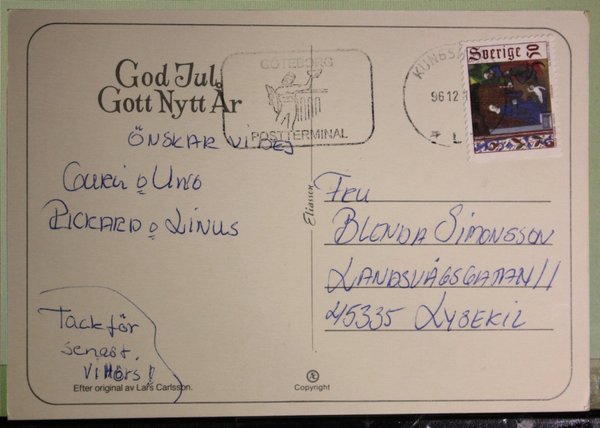 God Jul
Gott Nytt År
ÖNSKAR VI DEJ
GURLI o UNO
RICKARD o LINUS
Tack för
senast.
Vi Hörs!
Efter original av Lars Carlsson.
GÖTEBORG
POSTTERMINAL
KUNGS
96 12
Sverige
Eliasson
FRU
BLENDA SIMONSSON
LANDSVÄGSGATAN 11
45335 LYSEKIL
Copyright